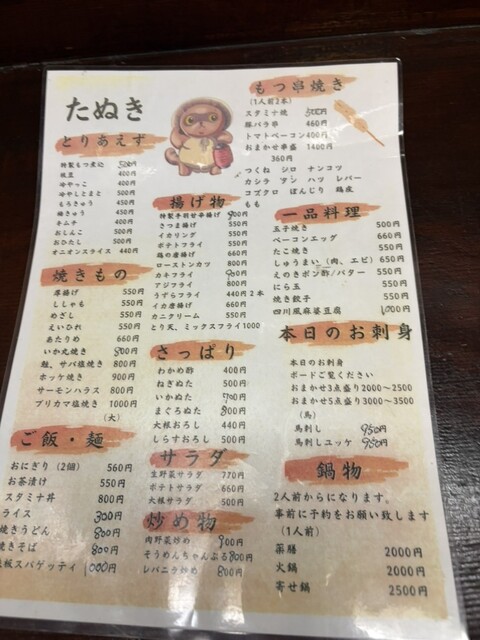 たぬき
とりあえず
特製もつ煮込 500円
枝豆 400円
冷やっこ 400円
冷やしとまと 500円
もろきゅう 450円
梅きゅう 450円
キムチ 400円
おしんこ 500円
おひたし 500円
オニオンスライス 440円
焼きもの
厚揚げ 550円
ししゃも 550円
めざし 550円
えいひれ 550円
あたりめ 660円
いか丸焼き 800円
鮭、サバ塩焼き 800円
ホッケ焼き 900円
サーモンハラス 800円
ブリカマ塩焼き 1000円
(大)
ご飯・麺
おにぎり (2個) 560円
お茶漬け 550円
スタミナ丼 800円
ライス 300円
焼きうどん 800円
焼きそば 800円
鉄板スパゲッティ 1000円
揚げ物
特製手羽せ辛揚げ 900円
さつま揚げ 550円
イカリング 550円
ポテトフライ 550円
鶏の唐揚げ 660円
ローストンカツ 800円
カキフライ
アジフライ 800円
うずらフライ 440円2本
イカ唐揚げ 660円
カニクリーム 550円
とり天、ミックスフライ1000
さっぱり
わかめ酢 400円
ねぎぬた 500円
いかぬた 700円
まぐろぬた 800円
大根おろし 440円
しらすおろし 500円
サラダ
生野菜サラダ 770円
ポテトサラダ 660円
大根サラダ 500円
炒め物
肉野菜炒め 900円
そうめんちゃんぷる 800円
レバニラ炒め 800円
もつ串焼き
(1人前2本)
スタミナ焼 500円
豚バラ串 460円
トマトベーコン400円
おまかせ串盛 1400円
360円
つくね シロ ナンコツ
カシラ タン ハツ レバー
コブクロ ぼんじり 鶏皮
もも
一品料理
玉子焼き 500円
ベーコンエッグ 660円
たこ焼き 550円
しゅうまい (肉、エビ) 650円
えのきポン酢/バター 550円
にら玉 550円
焼き餃子 550円
四川風麻婆豆腐 1000円
本日のお刺身
本日のお刺身
ボードご覧ください
おまかせ3点盛り2000～2500
おまかせ5点盛り3000～3500
(馬)
馬刺し 950円
馬刺しユッケ 950円
鍋物
2人前からになります。
事前に予約をお願い致します
(1人前)
薬膳 2000円
火鍋 2000円
寄せ鍋 2500円